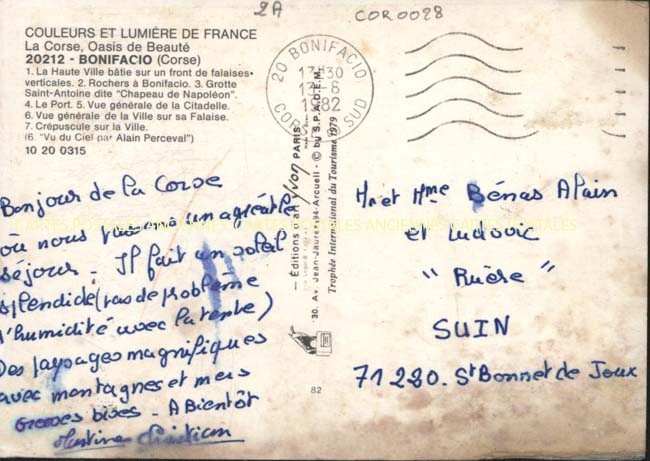 2A
COR0028
COULEURS ET LUMIÈRE DE FRANCE
La Corse, Oasis de Beauté
20212 - BONIFACIO (Corse)
1. La Haute Ville bâtie sur un front de falaises
verticales. 2. Rochers à Bonifacio. 3. Grotte
Saint-Antoine dite "Chapeau de Napoléon".
4. Le Port. 5. Vue générale de la Citadelle.
6. Vue générale de la Ville sur sa Falaise.
7. Crépuscule sur la Ville.
(6 "Vu du Ciel par Alain Perceval")
10 20 0315
20 BONIFACIO
17-8
1982
SUD
Bonjour de la Corse
où nous un agréable
séjour. Il fait un soleil
splendide (pas de problème
d'humidité avec la tente)
Des paysages magnifiques
avec montagnes et mers
Grosses bises - A Bientôt
Martine Christian
— Éditions d'art Yvon PARIS
30. Av. Jean-Jaurès-94-Arcueil - © by S.P.A.D.E.M.
Trophée International du Tourisme 1979
82
Mr et Mme Bénas Alain
et Ludovic
"Ruère"
SUIN
71220. St Bonnet de Joux
CARTES POSTALES ANCIENNES CARTES POSTALES